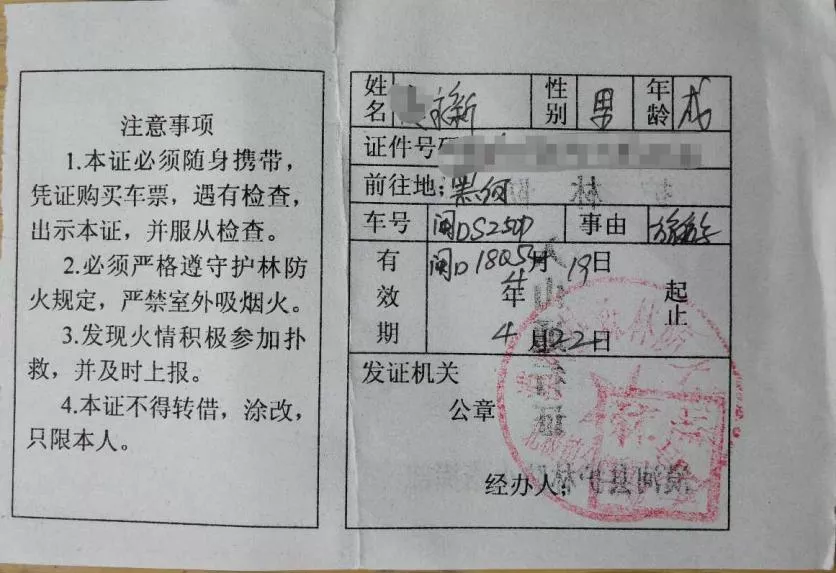 注意事项
1.本证必须随身携带，
凭证购买车票，遇有检查，
出示本证，并服从检查。
2.必须严格遵守护林防
火规定，严禁室外吸烟火。
3.发现火情积极参加扑
救，并及时上报。
4.本证不得转借，涂改，
只限本人。
姓名 新 性别 男 年龄
证件号
前往地：黑河
车号 闽DS250D 事由 旅游
有效期 闽D 月19日 起
年 止
4月22日
发证机关
公章
经办人：